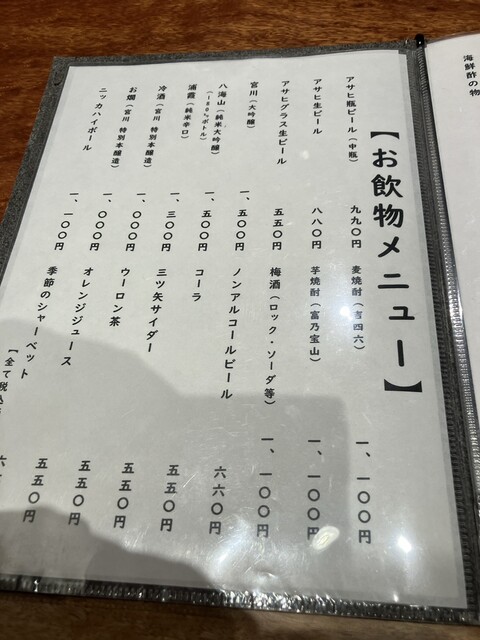 【お飲物メニュー】
アサヒ瓶ビール（中瓶） 九九〇円
アサヒ生ビール 八八〇円
アサヒグラス生ビール 五五〇円
宮川（大吟醸） 一、五〇〇円
八海山（純米大吟醸）
（180㍉ボトル） 一、五〇〇円
浦霞（純米辛口） 一、三〇〇円
冷酒（宮川 特別本醸造） 一、〇〇〇円
お燗（宮川 特別本醸造） 一、〇〇〇円
ニッカハイボール 一、一〇〇円
麦焼酎（吉四六） 一、一〇〇円
芋焼酎（富乃宝山） 一、一〇〇円
梅酒（ロック・ソーダ等） 一、一〇〇円
ノンアルコールビール 六六〇円
コーラ 五五〇円
三ツ矢サイダー 五五〇円
ウーロン茶 五五〇円
オレンジジュース 五五〇円
季節のシャーベット 六
【全て税込
海鮮酢の物